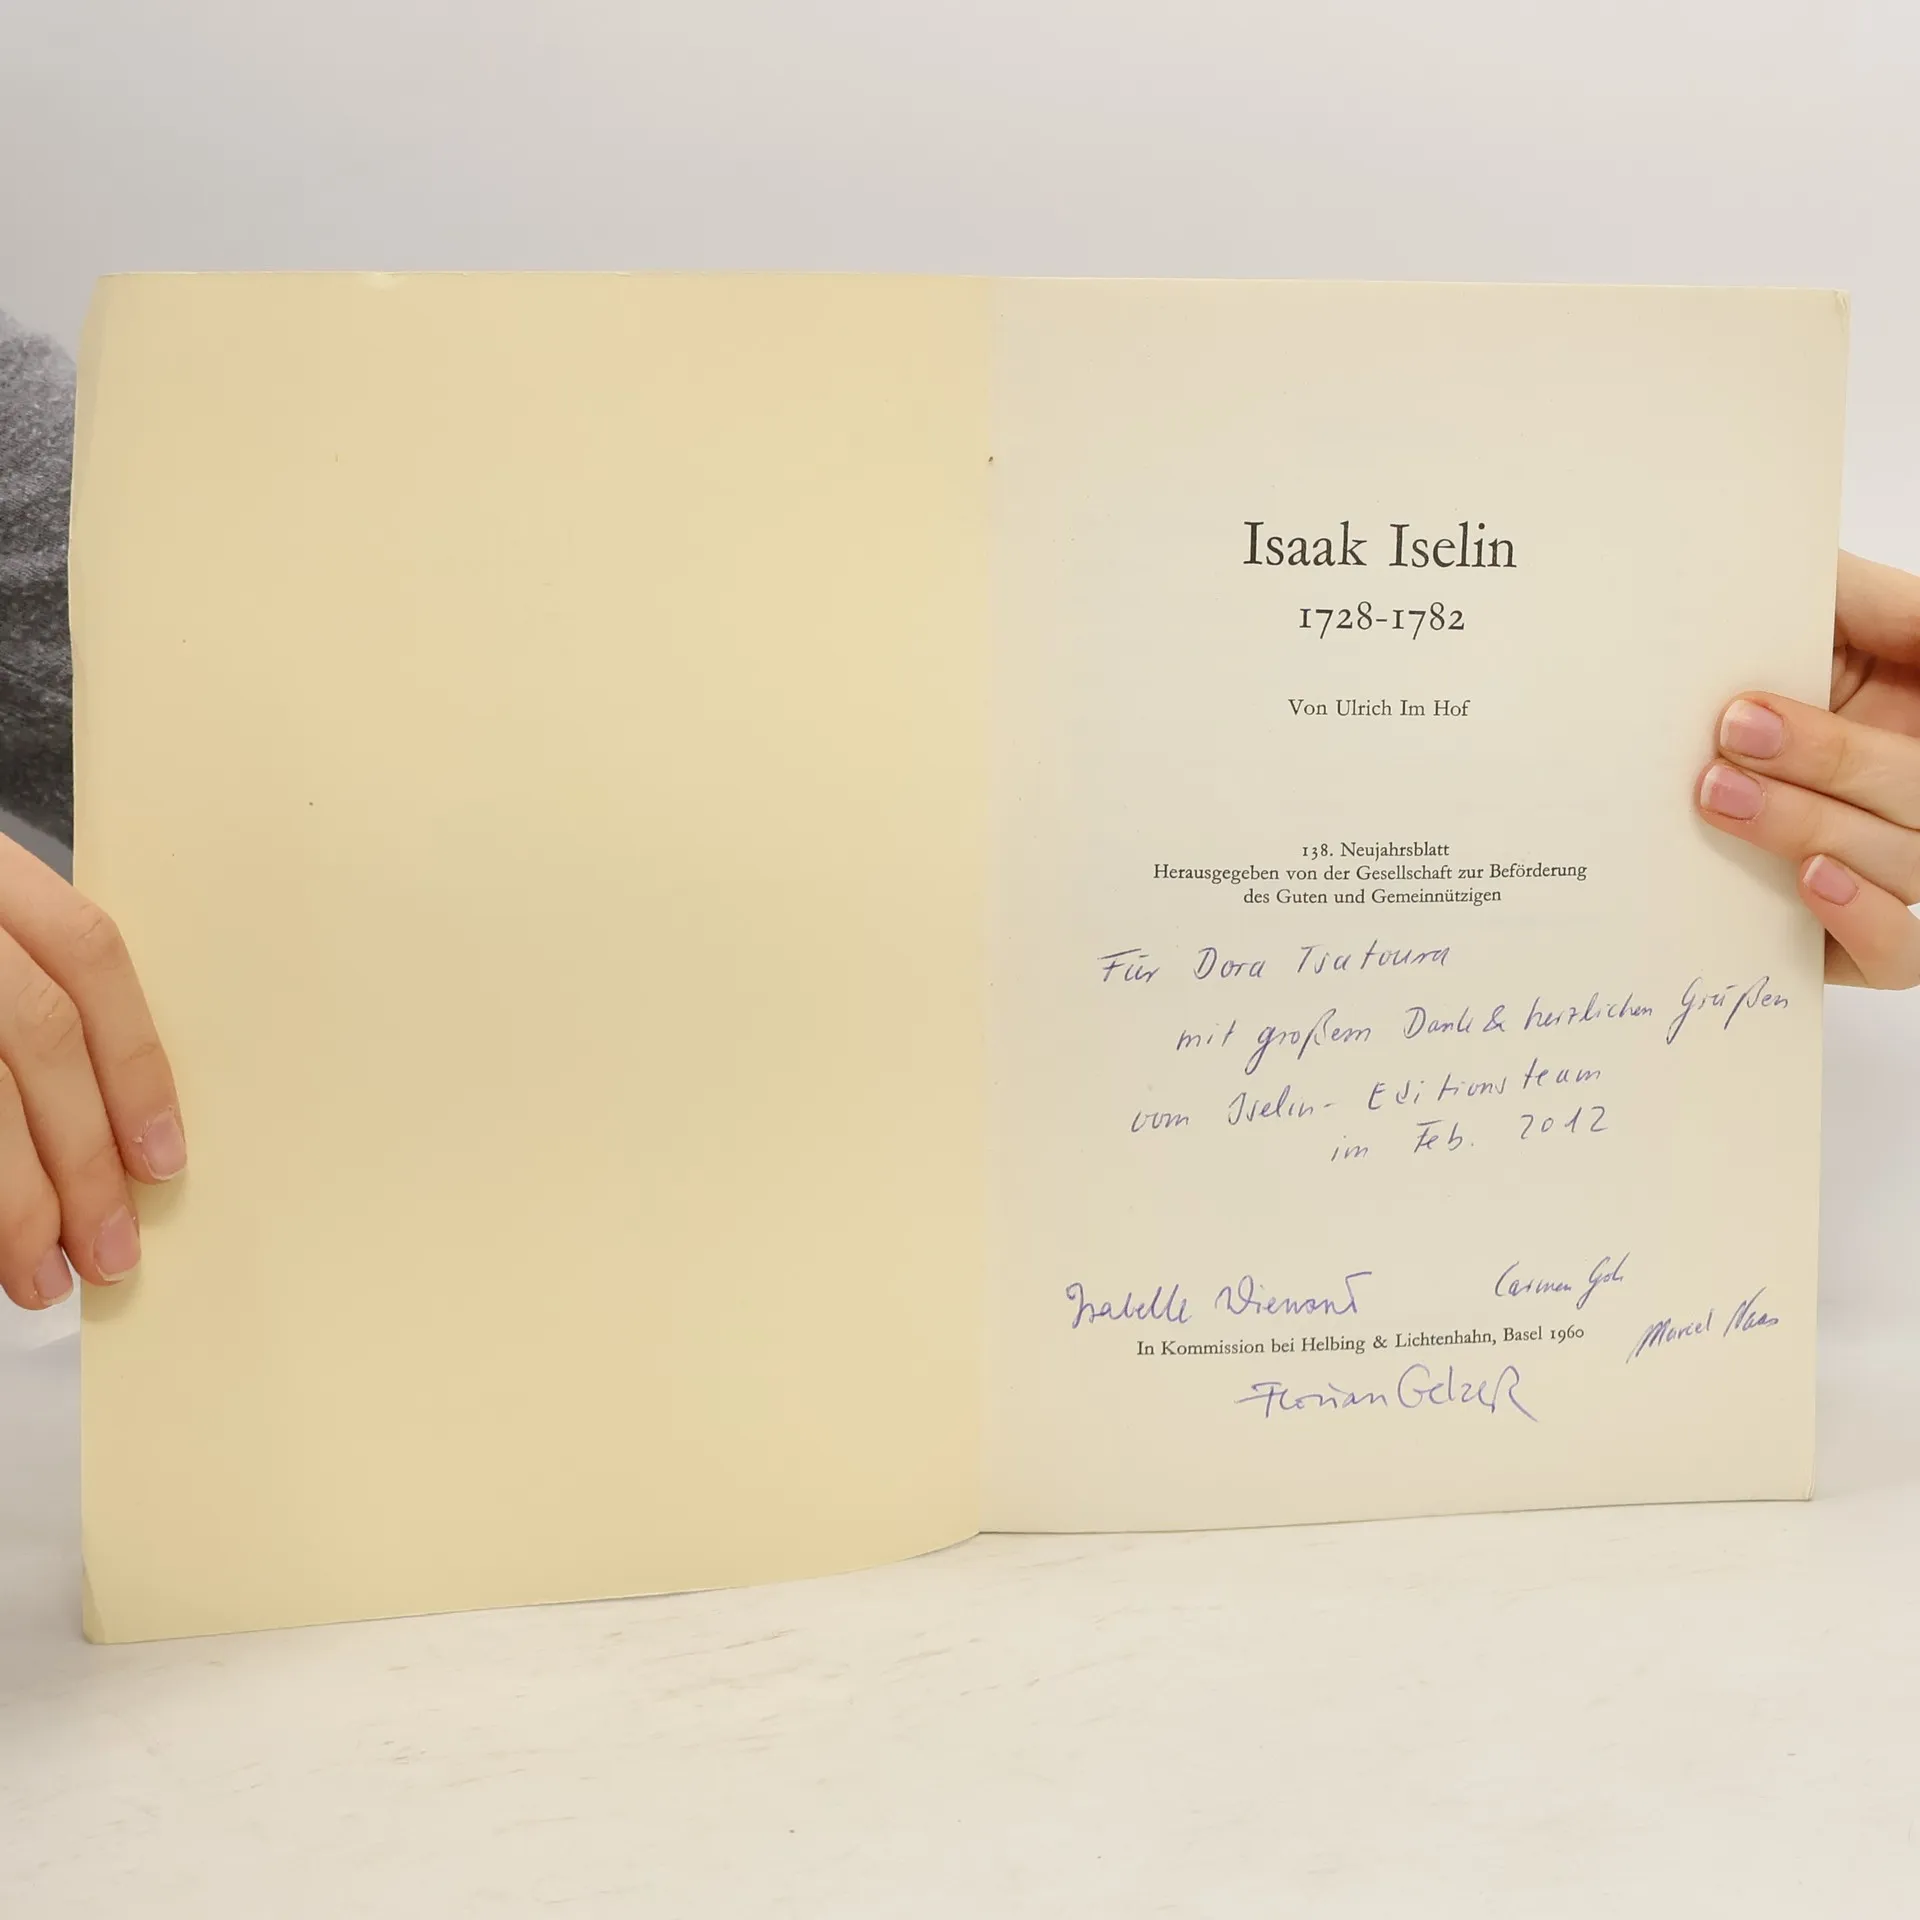 Isaak Iselin
1728-1782
Von Ulrich Im Hof
138. Neujahrsblatt
Herausgegeben von der Gesellschaft zur Beförderung
des Guten und Gemeinnützigen
Für Dora Tsatoura
mit großem Dank & herzlichen Grüßen
vom Iselin-Editionsteam
im Feb. 2012
Isabelle Wienand
Carmen
Marcel Naas
In Kommission bei Helbing & Lichtenhahn, Basel 1960
Florian Gelzer